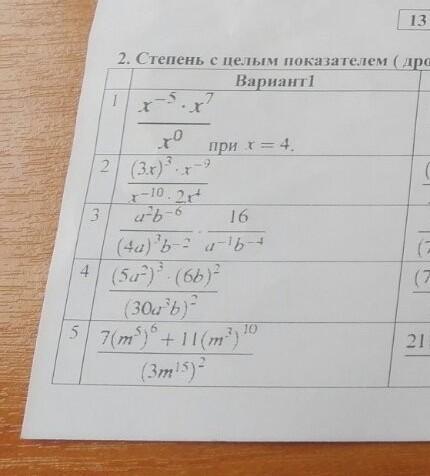 13
2. Степень с целым показателем ( дро
Вариант1
1 \frac{x^{-5} \cdot x^{7}}{x^{0}} при x = 4.
2 \frac{(3x)^{3} \cdot x^{-9}}{x^{-10} \cdot 2x^{4}} (
3 \frac{a^{2}b^{-6}}{(4a)^{3}b^{-2}} \cdot \frac{16}{a^{-1}b^{-4}} (7
4 \frac{(5a^{2})^{3} \cdot (6b)^{2}}{(30a^{3}b)^{2}} (7
5 \frac{7(m^{5})^{6} + 11(m^{3})^{10}}{(3m^{15})^{2}} 21